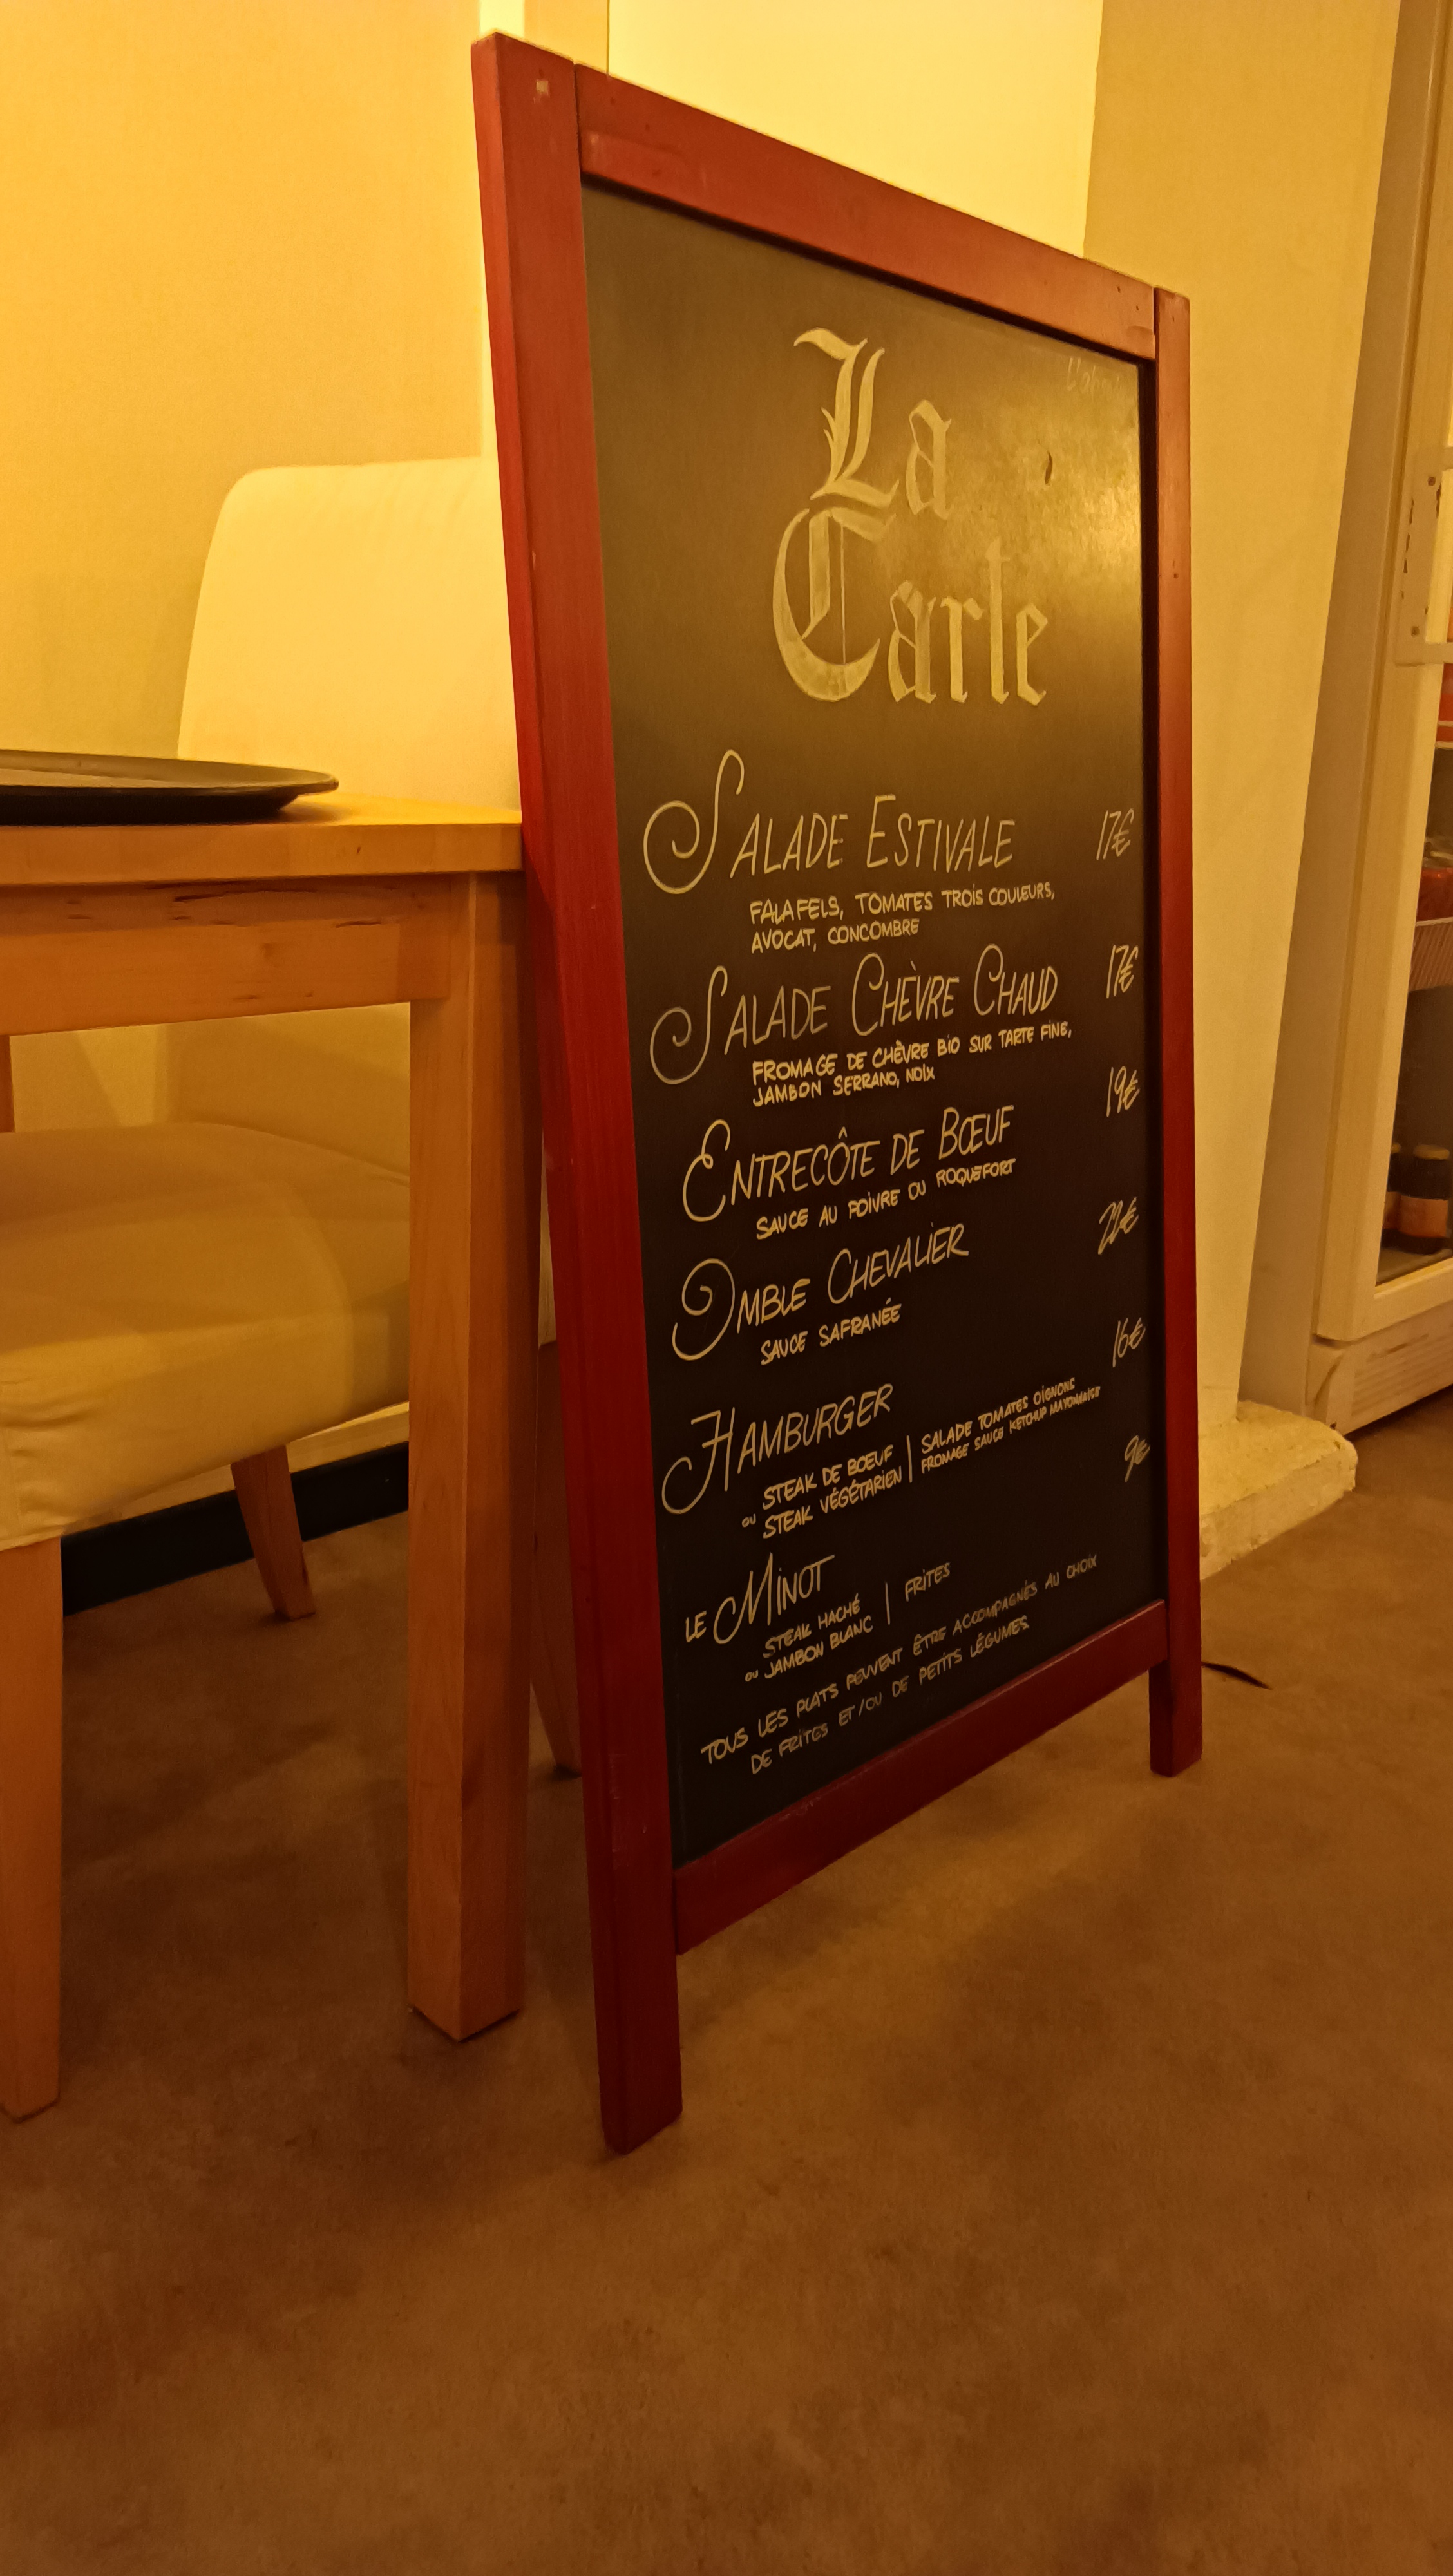 La
Carte
SALADE ESTIVALE 17€
FALAFELS, TOMATES TROIS COULEURS,
AVOCAT, CONCOMBRE
SALADE CHÈVRE CHAUD 17€
FROMAGE DE CHÈVRE BIO SUR TARTE FINE,
JAMBON SERRANO, NOIX
ENTRECÔTE DE BŒUF 19€
SAUCE AU POIVRE OU ROQUEFORT
OMBLE CHEVALIER 22€
SAUCE SAFRANÉE
HAMBURGER 16€
STEAK DE BŒUF | SALADE TOMATES OIGNONS
OU STEAK VÉGÉTARIEN | FROMAGE SAUCE KETCHUP MAYONNAISE
LE MINOT 9€
STEAK HACHÉ | FRITES
OU JAMBON BLANC
TOUS LES PLATS PEUVENT ÊTRE ACCOMPAGNÉS AU CHOIX
DE FRITES ET/OU DE PETITS LÉGUMES